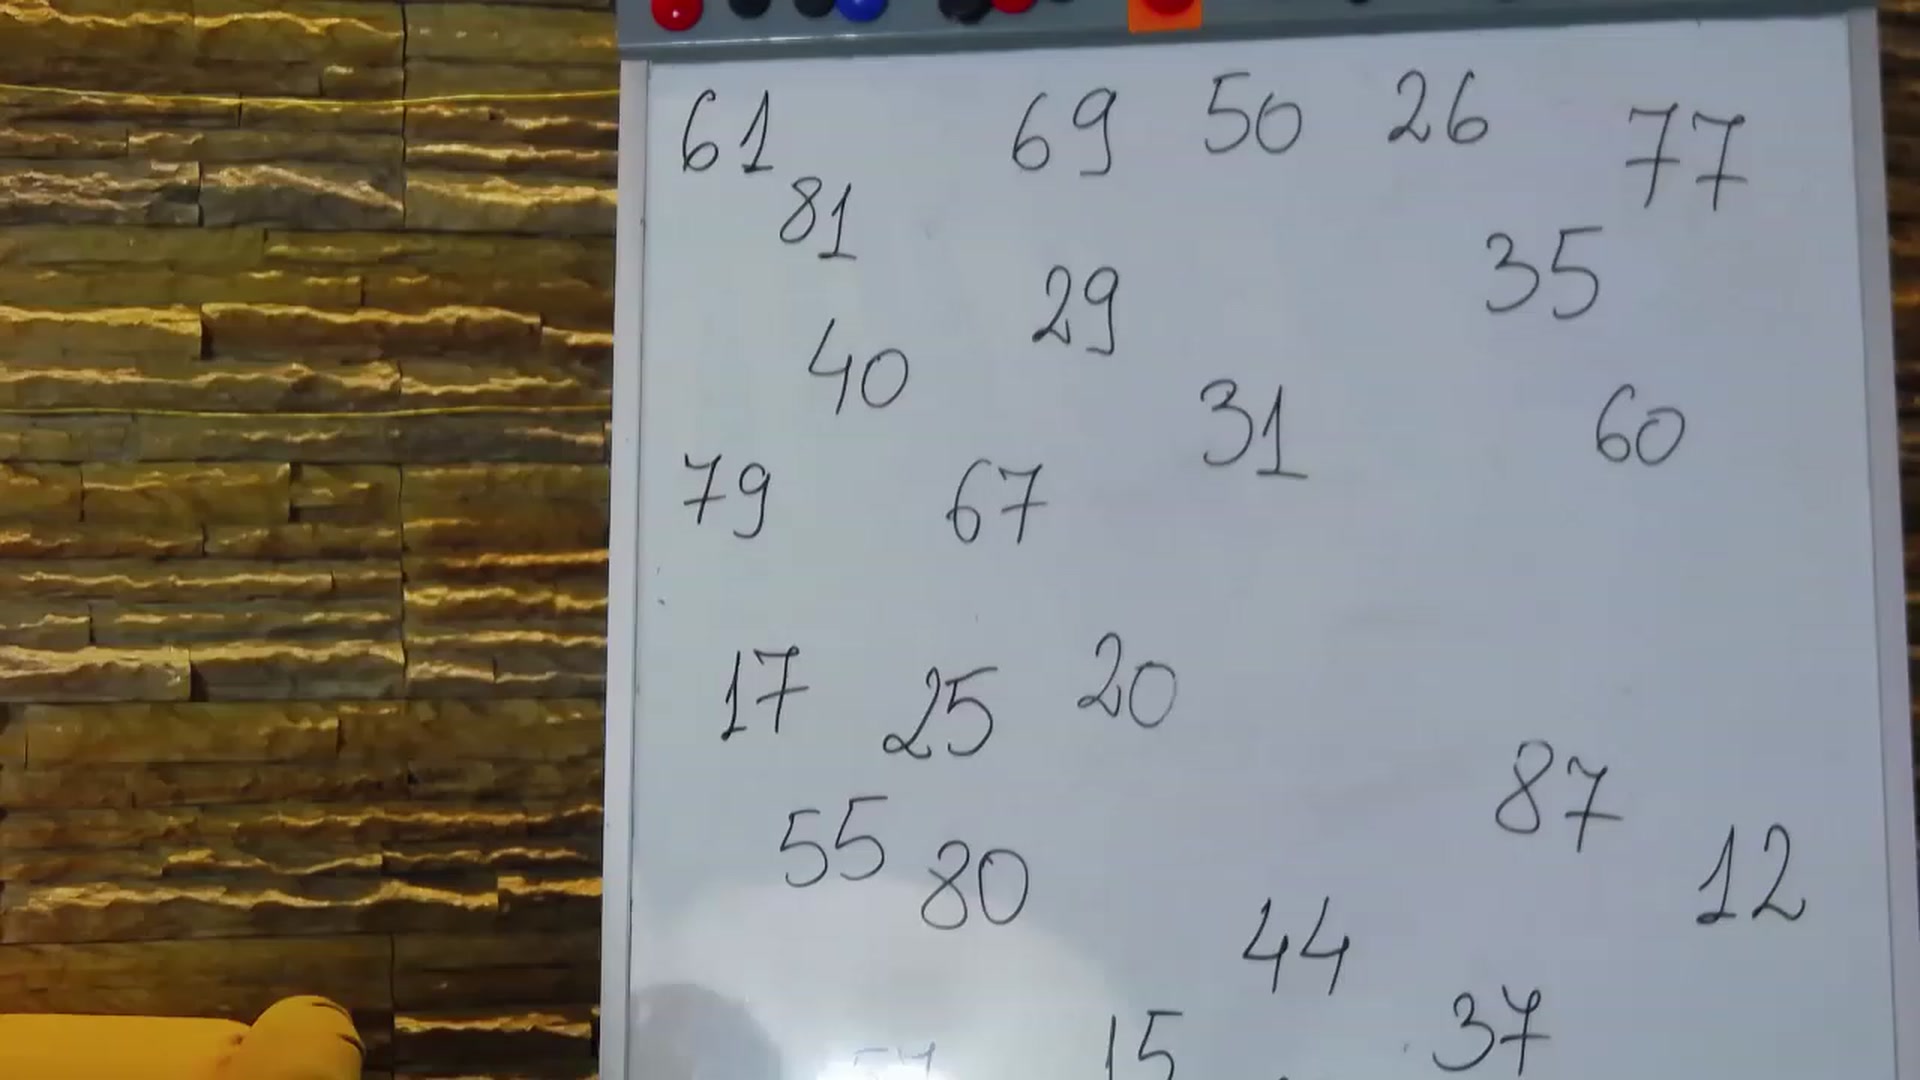 61 69 50 26 77
81
29 35
40
31 60
79 67
17 25 20
87
55 80 12
44
15 37